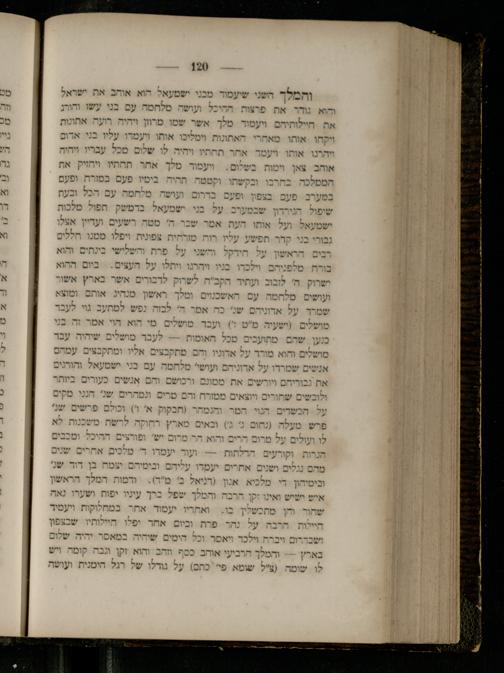 — 120 —
והמלך השני שיעמוד מבני ישמעאל הוא אוהב את ישראל
והוא גודר את פרצות ההיכל ועושה מלחמה עם בני עשו והורג
את חיילותיהם ויעמוד מלך אשר שמו מרוון ויהיה רועה אתונות
ויקחו אותו מאחרי האתונות וימליכו אותו ויעמדו עליו בני אדום
ויהרגו אותו ויעמד אחר תחתיו ויהיה לו שלום מכל עבריו ויהיה
אוהב ציון וימות בשלום. ויעמוד מלך אחר תחתיו ויחזיק את
הממלכה בחרבו ובקשתו וקטטה תהיה בימיו פעם במזרח ופעם
במערב פעם בצפון ופעם בדרום ועושה מלחמה עם הכל ובעת
שיפול הגירדון שבמערב על בני ישמעאל בדמשק תפול מלכות
ישמעאל ועל אותו העת אמר שבר ה' מטה רשעים ועדיין אצלו
גבורי בני קדר תפשע עליו רוח מזרחית צפונית ויפלו ממנו חללים
רבים הראשון על חידקל והשני על פרת והשלישי בינתים והוא
בורח מלפניהם וילכדו בניו ויהרגו ויתלו על העצים. ביום ההוא
ישרוק ה' לזבוב ועתיד הקב"ה לשרוק לדבורים אשר בארץ אשור
ועושים מלחמה עם האשכנזים ומלך ראשון מנהיג אותם ומוצא
שמרד על אדוניהם שנ' כה אמר ה' לבזה נפש למתעב גוי לעבד
מושלים (ישעיה מ"ט ז') ועבד מושלים מי הוא הוי אמר זה בני
כנען שהם מתועבים מכל האומות — לעבד מושלים שיהיה עבד
מושלים והוא מורד על אדוניו והם מתקבצים אליו ומתקבצים עמהם
אנשים שמרדו על אדוניהם ועושי' מלחמה עם בני ישמעאל והורגים
את גבוריהם ויורשים את ממונם ורכושם והם אנשים כעורים ביותר
ולובשים שחורים ויוצאים ממזרח והם מרים ונמהרים שנ' הנני מקים
על הכשדים הגוי המר והנמהר (חבקוק א' ו') וכולם פרשים שנ'
פרש מעלה (נחום ג' ג') ובאים מארץ רחוקה לרשת משכנות לא
לו ועולים על מרום הרים והוא הר מרום יש' ופורצים ההיכל ומכבים
הנרות וקורעים הדלתות — ועוד יעמדו ד' מלכים אחרים שנים
מהם נגלים ושנים אחרים יעמדו עליהם ובימיהם יצמח בן דוד שנ'
וביומיהון די מלכיא אנון (דניאל ב' מ"ד). ודמות המלך הראשון
איש ישיש ואינו זקן הרבה והמלך שפל ברך עיניו יפות ושערו נאה
שחור והן מתכשלין בו. ואחריו יעמוד אחר במחלוקות ויעמיד
חיילות הרבה על נהר פרת וביום אחד יפלו חיילותיו שבצפון
ושבדרום ויברח וילכד ויאסר וכל הימים שיהיה במאסר יהיה שלום
בארץ — והמלך הרביעי אוהב כסף וזהב והוא זקן וגבה קומה ויש
לו שומה (צ"ל שומא פי' כתם) על גודלו של רגל הימנית ועושה